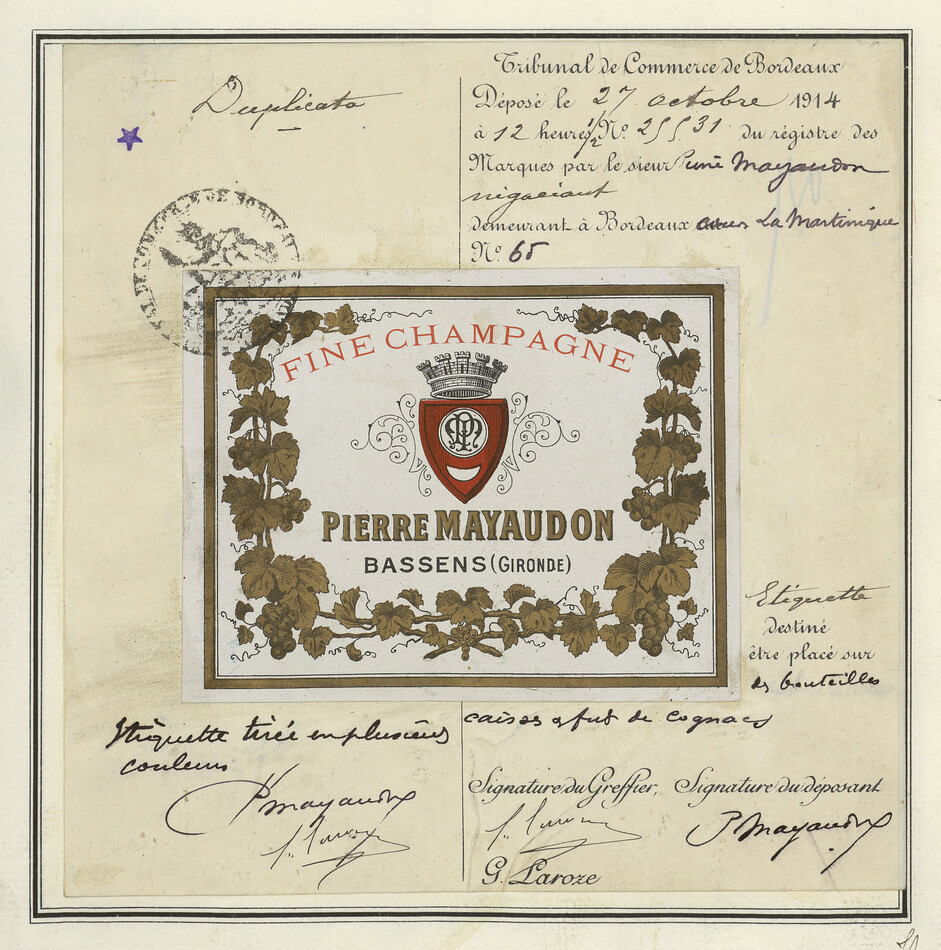 Duplicata
Tribunal de Commerce de Bordeaux
Déposé le 27 octobre 1914
à 12 heures 1/2 No. 25531 du régistre des
Marques par le sieur Mayaudon
négociant
demeurant à Bordeaux cours La Martinique
No. 65
FINE CHAMPAGNE
PM
PIERRE MAYAUDON
BASSENS (GIRONDE)
Etiquette
destiné
être placé sur
des bouteilles
caisses & fut de cognacs
Etiquette tirée en plusieurs
couleurs
PMayaudon
Signature du Greffier, Signature du déposant
PMayaudon
G. Laroze